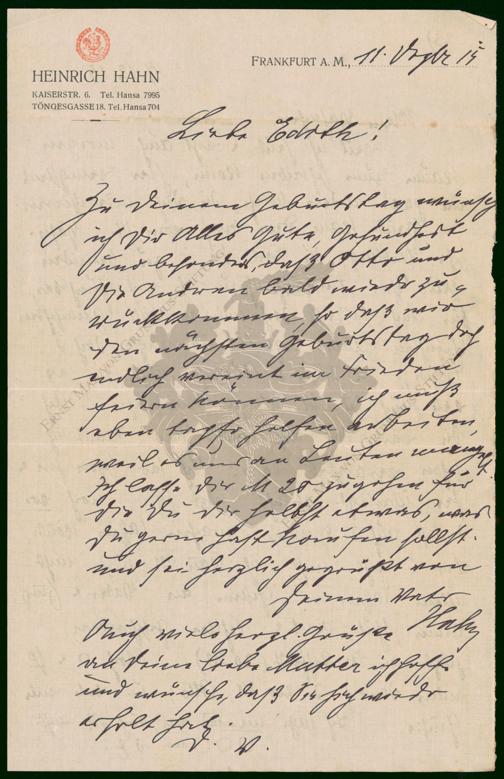 HEINRICH HAHN
KAISERSTR. 6. Tel. Hansa 7995
TÖNGESGASSE 18. Tel. Hansa 704
FRANKFURT A. M., 11. Dezbr 15
Liebe Edith!
Zu Deinem Geburtstag wünsch
ich Dir Alles Gute, Gesundheit
und besonders, daß Otto und
die Andren bald wieder zu-
rückkommen, so daß wir
den nächsten Geburtstag doch
endlich vereint im Frieden
feiern können, ich muß
eben tapfer helfen arbeiten,
weil es uns an Leuten mangelt.
Ich lasse Dir M 20 zugehen für
die Du Dir selbst etwas, was
Du gerne hast kaufen sollst.
und sei herzlich gegrüßt von
Deinem Vater
Hahn
Auch viele herzl. Grüße
an Deine liebe Mutter ich hoffe
und wünsche, daß Sie sich wieder
erholt hat.
D. V.